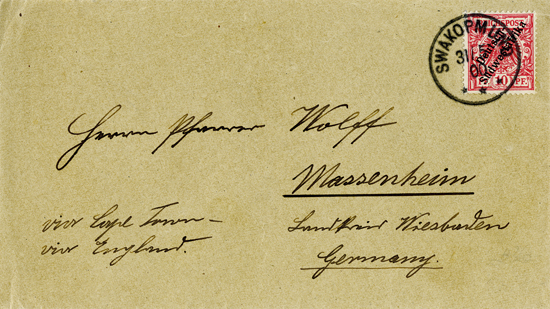 SWAKOPMUND
31
00
REICHSPOST
Deutsch-
Südwestafrika
10 PF
Herrn Pfarrer Wolff
Massenheim
Landkreis Wiesbaden
Germany.
via Cape Town –
via England.